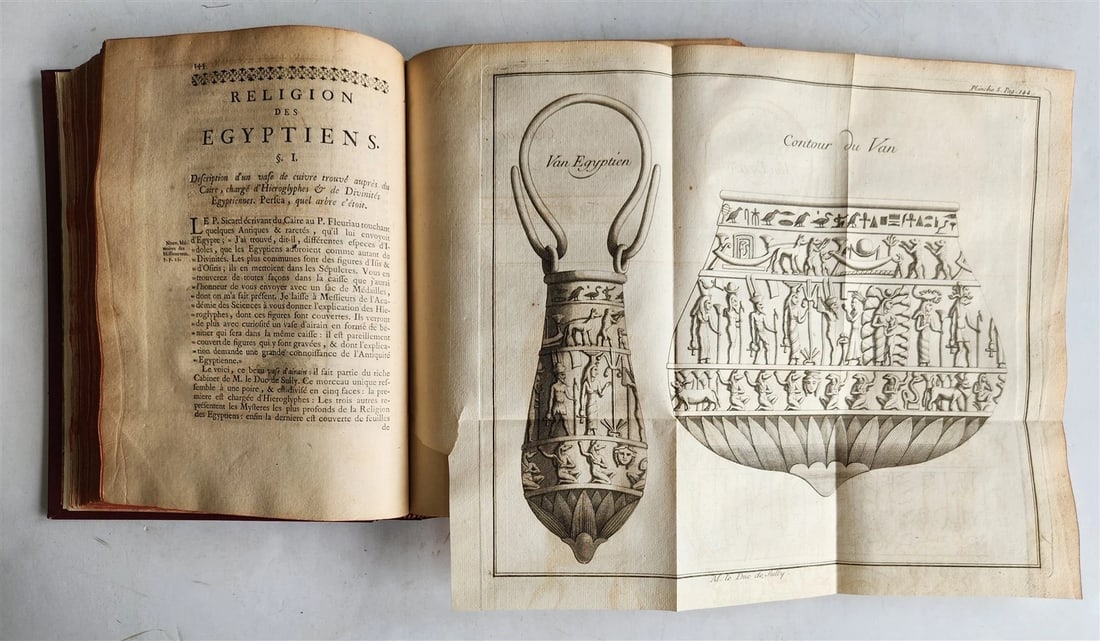 144
RELIGION
DES
EGYPTIENS.
§. I.
Description d'un vase de cuivre trouvé auprès du
Caire, chargé d'Hieroglyphes & de Divinités
Egyptiennes. Persea, quel arbre c'étoit.
LE P. Sicard écrivant du Caire au P. Fleuriau touchant
quelques Antiques & raretés, qu'il lui envoyoit
d'Egypte; « J'ai trouvé, dit-il, différentes especes d'I-
» doles, que les Egyptiens adoroient comme autant de
» Divinités. Les plus communes sont des figures d'Isis &
» d'Osiris; ils en mettoient dans les Sépulcres. Vous en
» trouverez de toutes façons dans la caisse que j'aurai
» l'honneur de vous envoyer avec un sac de Médailles,
» dont on m'a fait présent. Je laisse à Messieurs de l'Aca-
» démie des Sciences à vous donner l'explication des Hie-
» roglyphes, dont ces figures sont couvertes. Ils verront
» de plus avec curiosité un vase d'airain en forme de bé-
» nitier qui sera dans la même caisse: il est pareillement
» couvert de figures qui y sont gravées, & dont l'explica-
» tion demande une grande connoissance de l'Antiquité
» Egyptienne.»
Le voici, ce beau vase d'airain: il fait partie du riche
Cabinet de M. le Duc de Sully. Ce morceau unique res-
semble à une poire, & est divisé en cinq faces: la pre-
miere est chargée d'Hieroglyphes: Les trois autres re-
présentent les Mysteres les plus profonds de la Religion
des Egyptiens: enfin la derniere est couverte de feuilles
de
Nouv. Mé-
moires des
Missionnaires.
Planche 5. Pag. 144
Van Egyptien
Contour du Van
M. le Duc de Sully